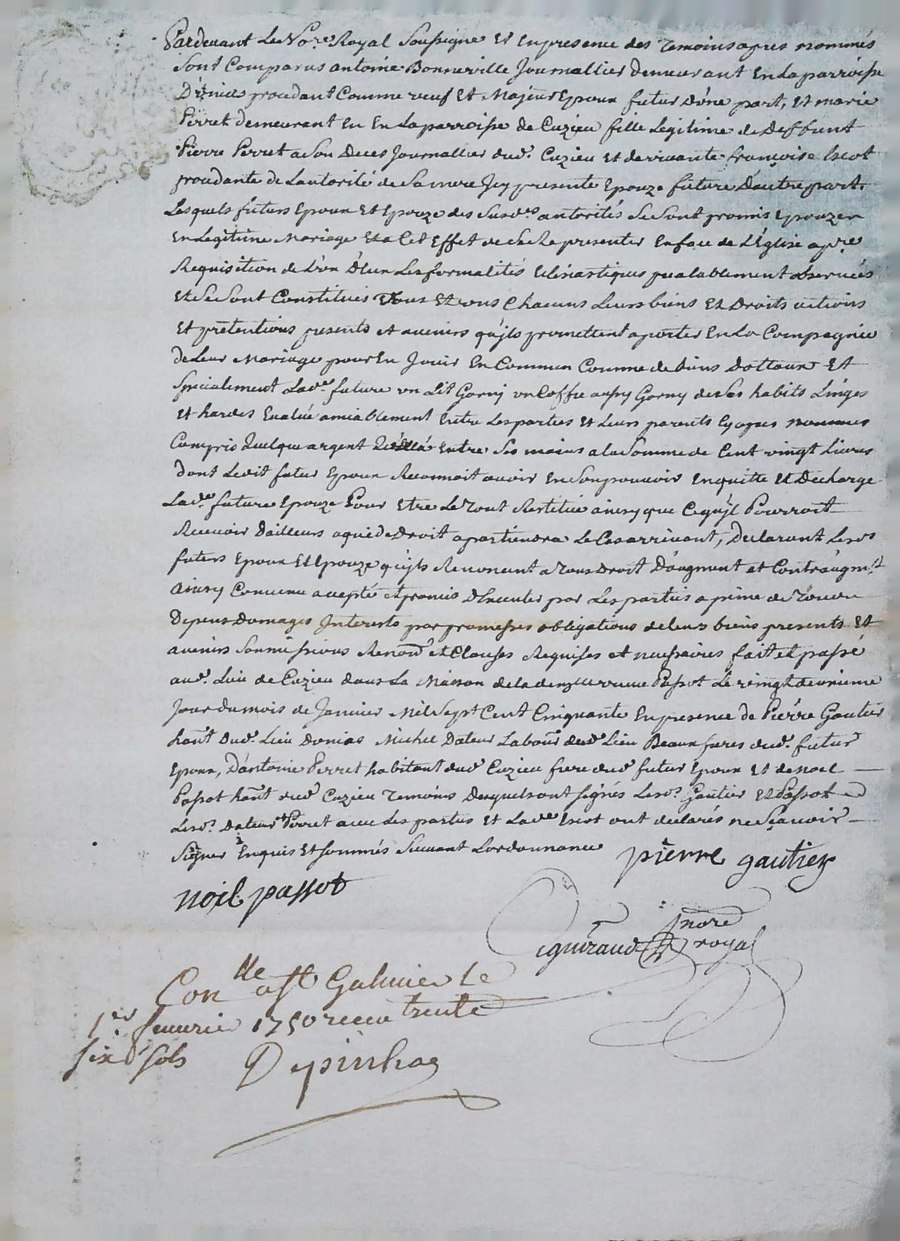 Pardevant Le No.re Royal Soussigné Et En presence des Temoins apres nommés
Sont Comparus antoine Bonneville Journallier demeurant En La parroisse
procedant Comme veuf Et Majeur Epoux futur D'une part, Et marie
Perret demeurant En La parroisse de Cuzieu fille Legitime de Deffunt
Pierre Perret a Son Deces Journallier dud. Cuzieu Et de vivante françoise Iscot
procedante de L'autorité de Sa mere Icy presente Epouze future D'autre part,
Lesquels futurs Epoux Et Epouze des Susd.es autorités Se Sont promis Epouzer
En Legitime Mariage Et a Cet Effet de Se Representer En face de L'Eglise a p.re
Requisition de L'un D'Eux Les formalités Eclésiastiques prealablement observées
Et Se Sont Constitués Tous Et uns Chacuns Leurs biens Et Droits actions
Et prétentions presents et avenirs qu'ils promettent aporter En La Compagnie
de Leur Mariage pour En Jouir En Commun Comme de biens Dottaux Et
Spécialement Lad.e future un Lit Garny un Coffre aussy Garny de Ses habits Linges
Et hardes Evalué amiablement Entre Les parties Et Leurs parents Cy apres nommés
Compris quelque argent Entre Ses mains a La Somme de Cent vingt Livres
dont Ledit futur Epoux Reconnoit avoir En Son pouvoir En quitte Et Decharge
Lad.e future Epouze Pour Etre Le Tout Restitué ainsy que Ce qu'il Pourroit
Recevoir D'ailleurs a qui de Droit apartiendra Le Cas arrivant, Declarant Lesd.s
futurs Epoux Et Epouze qu'ils Renoncent a Tous Droit D'augment et Contraugm.t
ainsy Convenu accepté et promis D'Executer par Les parties a peine de Tous
Depens Domages Interests par promesses obligations de Leurs biens presents Et
avenirs Soumissions Renon.s et Clauses Requises et necessaires fait et passé
aud. Lieu de Cuzieu dans La Maison de La veuve Passot Le vingt deuxieme
Jour du mois de Janvier Mil Sept Cent Cinquante En presence de Pierre Gautier
hant. dud. Lieu Michel Dateur Labour. dud. Lieu Beaufrere dud. futur
Epoux, D'antoine Perret habitant dud. Cuzieu frere dud. futur Epoux Et de noel
Passot hant. dud. Cuzieu Temoins Desquels ont signés Lesd. Gautier Et Passot
Lesd. Dateur Perret avec Les parties Et Lad.e Iscot ont declarés ne Sçavoir
Signer Enquis Et Sommés Suivant L'ordonnance
pierre gautier
noel passot
guiraud nore
royal
Con.lle a St Galmier Le
1er fevrier 1750 receu trente
six sols
Depinhac